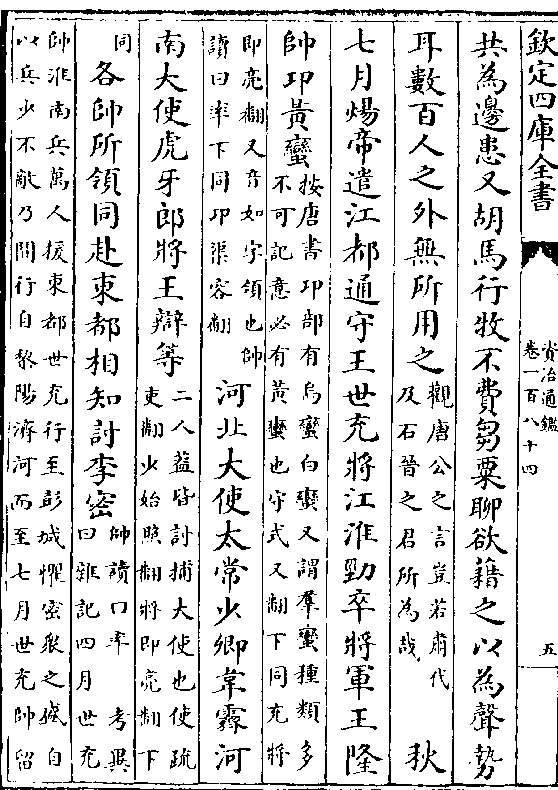 欽定四庫全書
資治通鑑
卷一百八十四
五
共為邊患又胡馬行牧不費芻粟聊欲藉之以為聲勢
耳數百人之外無所用之
觀唐公之言豈若肅代
及石晉之君所為哉
秋
七月煬帝遣江都通守王世充將江淮勁卒將軍王隆
帥邛黃蠻
按唐書邛部有烏蠻白蠻又謂羣蠻種類多
不可記意必有黃蠻也守式又翻下同充將
即亮翻又音如字領也帥
讀曰率下同邛渠容翻
河北大使太常少卿韋霽河
南大使虎牙郎將王辯等
二人蓋皆討捕大使也使疏
吏翻少始照翻將即亮翻下
同
各帥所領同赴東都相知討李密
帥讀曰率 考異
曰雜記四月世充
帥淮南兵萬人援東都世充行至彭城懼密衆之盛自
以兵少不敵乃間行自黎陽濟河而至七月世充帥留